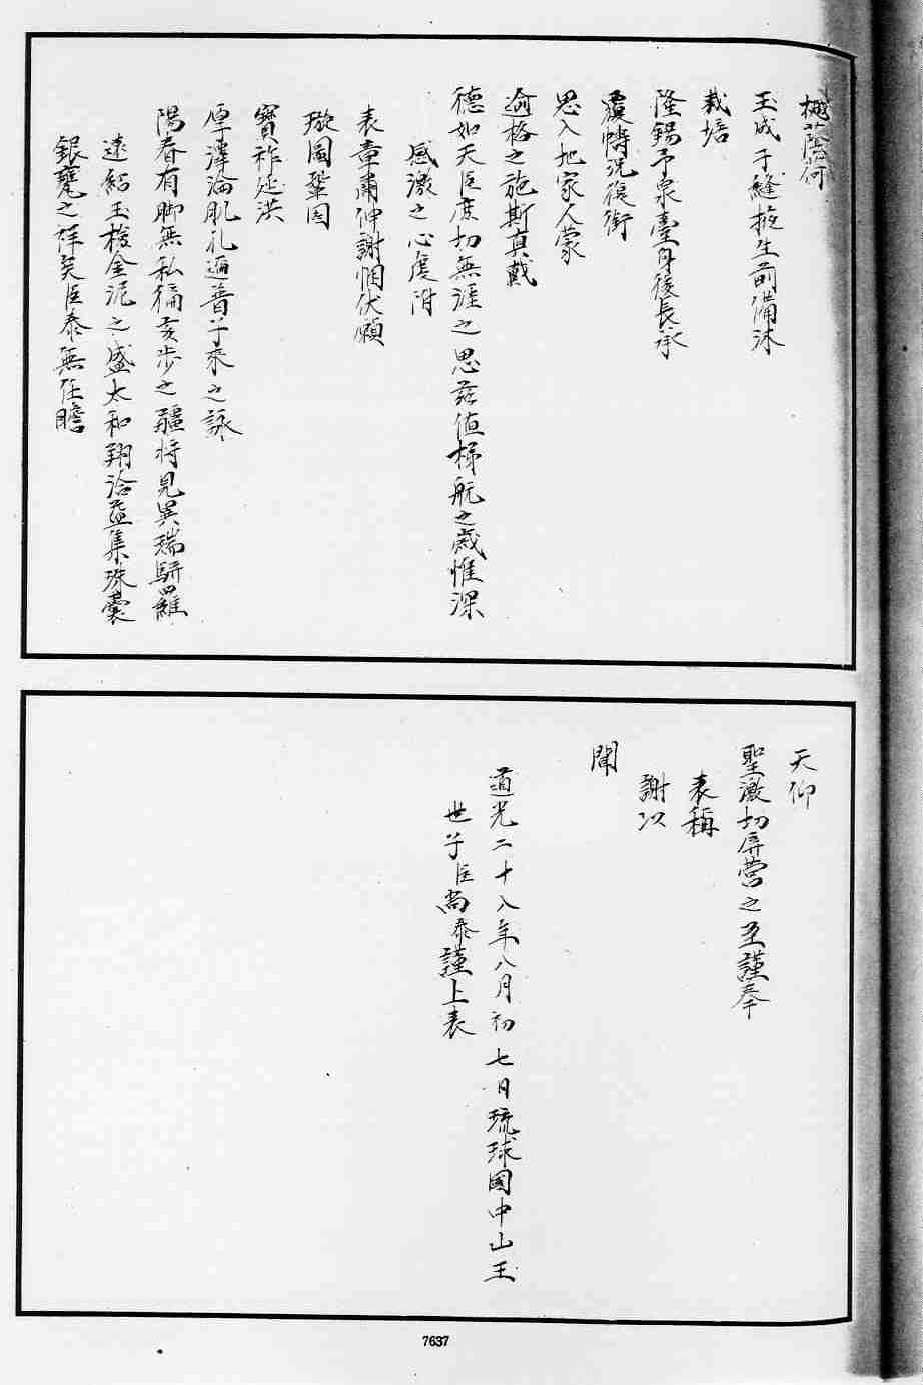 樾蔭荷
玉成于縫掖生前備沐
栽培
隆錫予泉臺身後長承
覆幬況復銜
恩入地家人蒙
逾格之施斯真戴
德如天臣庶切無涯之思茲值梯航之歲惟深
感激之心虔附
表章肅伸謝悃伏願
璇圖鞏固
寶祚延洪
厚澤淪肌札遍普子來之詠
陽春有脚無私獮亥步之疆將見異瑞駢羅
遠紹玉檢金泥之盛太和翔洽益集珠囊
銀甕之祥矣臣泰無任瞻
天仰
聖激切屏營之至謹奉
表稱
謝以
聞
道光二十八年八月初七日琉球國中山王
世子臣尚泰謹上表
7637